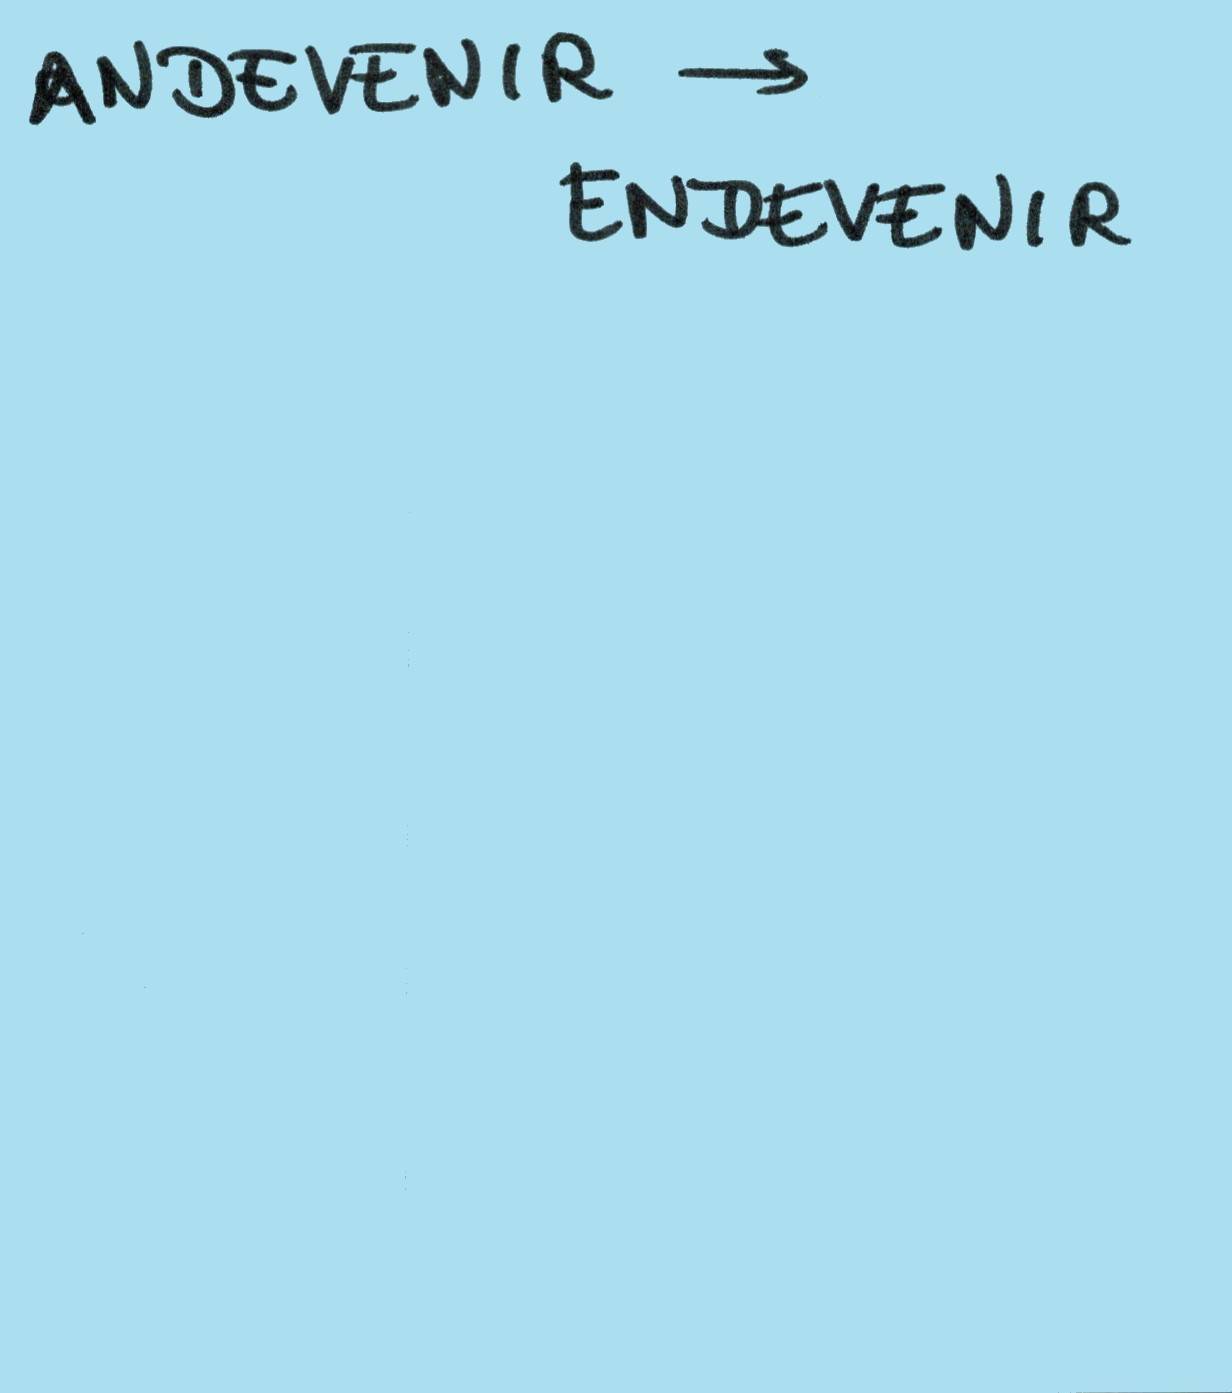 ANDEVENIR →
ENDEVENIR